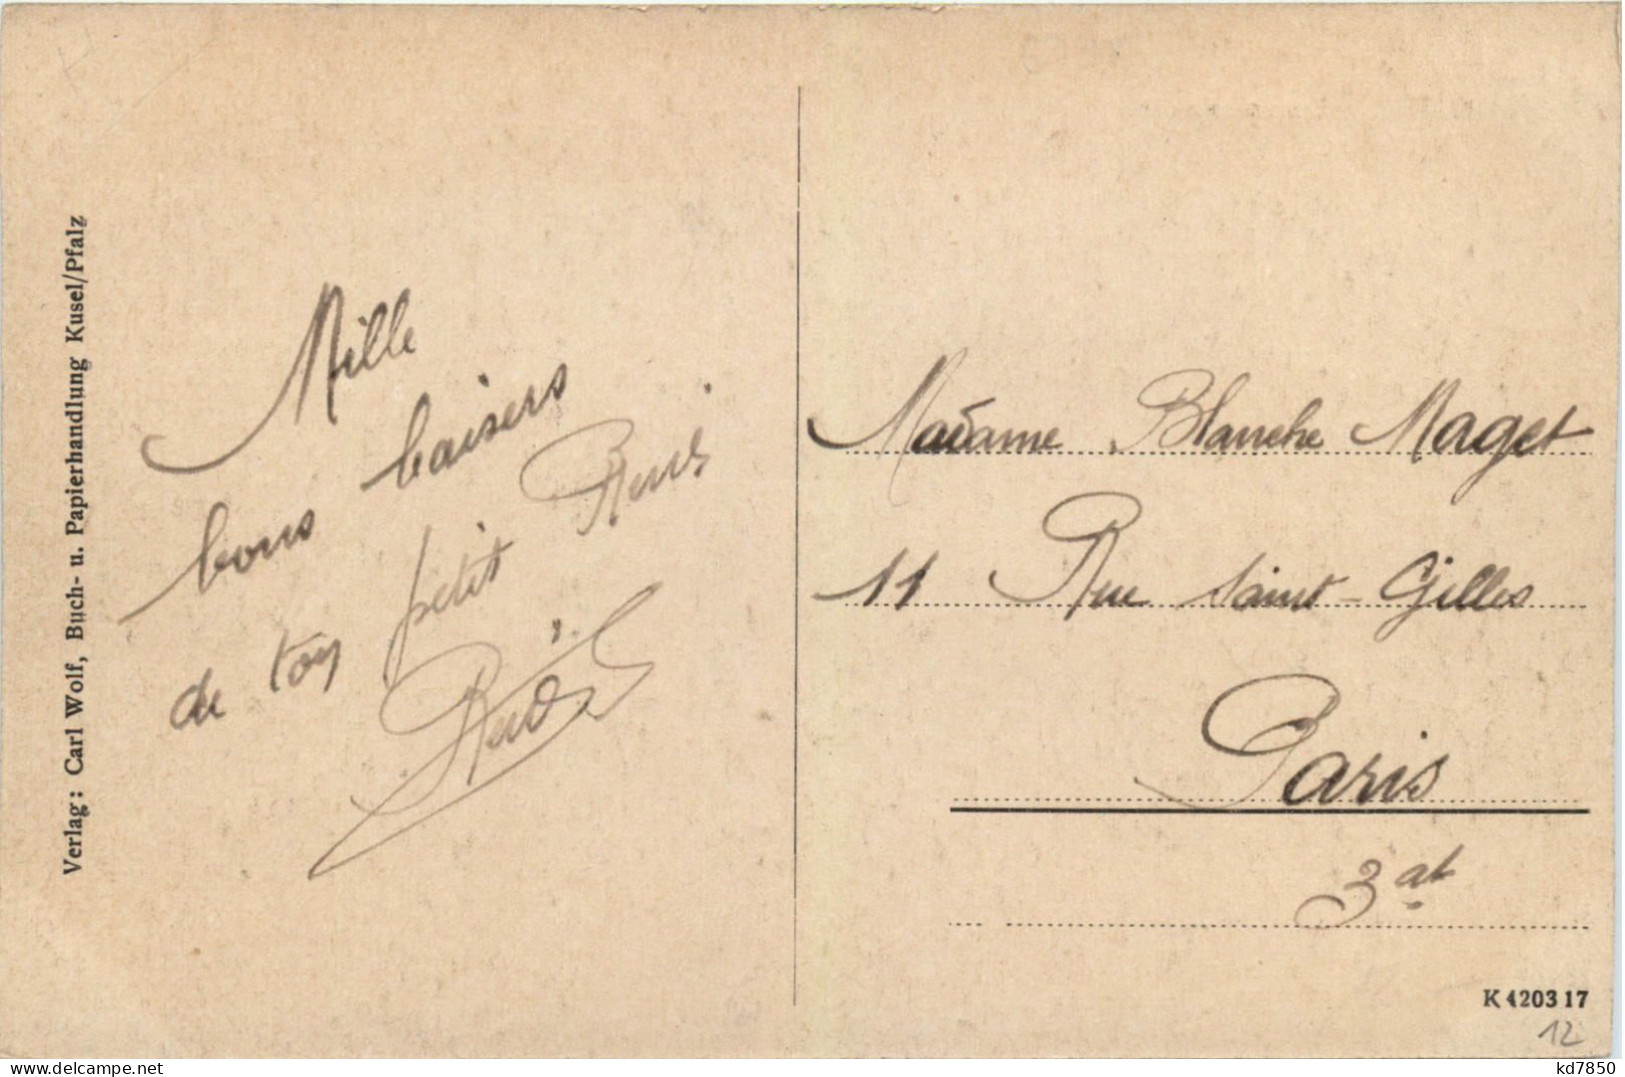 Verlag: Carl Wolf, Buch- u. Papierhandlung Kusel/Pfalz
Mille
bons baisers
de ton petit René
René
Madame Blanche Maget
11 Rue Saint-Gilles
Paris
3at
K 420317
12
kd7850